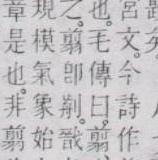 文。今詩作
也。毛傳曰。翦
之。翦卽戩
模氣象始
章是也。非翦